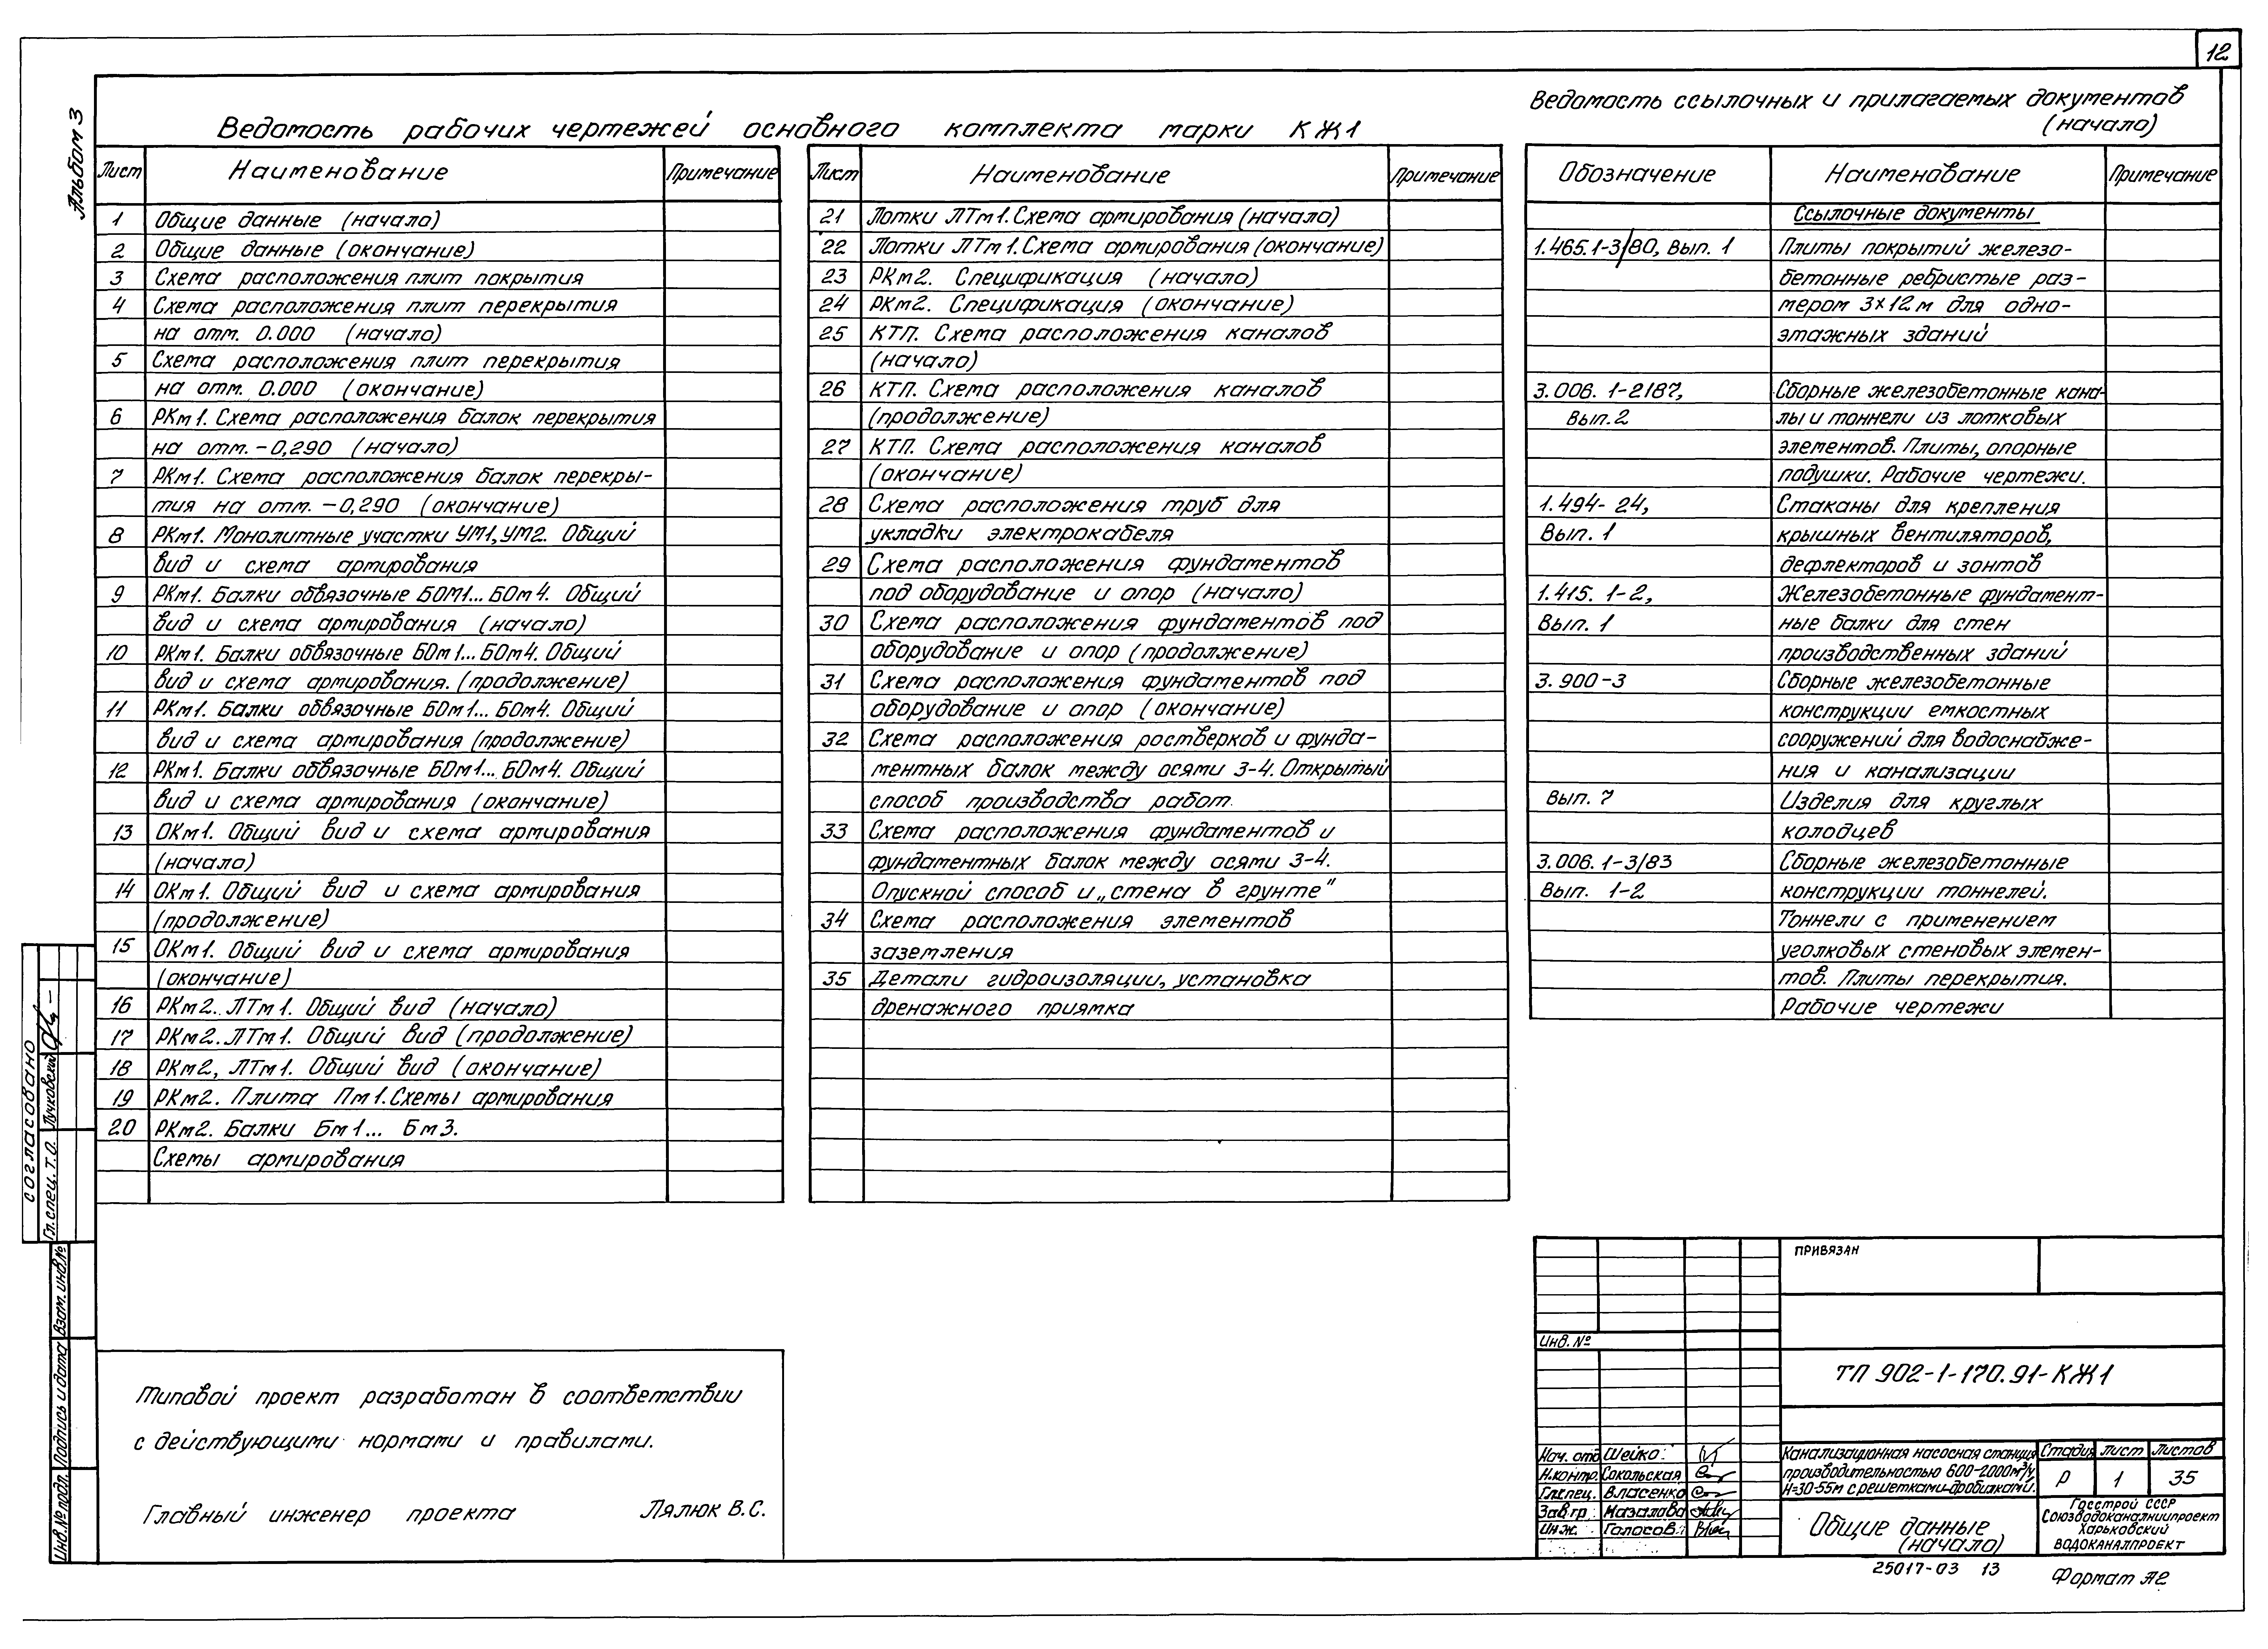 12
Альбом 3
Ведомость рабочих чертежей основного комплекта марки КЖ1
Лист Наименование Примечание
1 Общие данные (начало)
2 Общие данные (окончание)
3 Схема расположения плит покрытия
4 Схема расположения плит перекрытия
на отм. 0.000 (начало)
5 Схема расположения плит перекрытия
на отм. 0.000 (окончание)
6 РКм1. Схема расположения балок перекрытия
на отм. -0,290 (начало)
7 РКм1. Схема расположения балок перекры-
тия на отм. -0,290 (окончание)
8 РКм1. Монолитные участки УМ1, УМ2. Общий
вид и схема армирования
9 РКм1. Балки обвязочные БОМ1... БОм4. Общий
вид и схема армирования (начало)
10 РКм1. Балки обвязочные БОм1... БОм4. Общий
вид и схема армирования. (продолжение)
11 РКм1. Балки обвязочные БОм1... БОм4. Общий
вид и схема армирования (продолжение)
12 РКм1. Балки обвязочные БОм1... БОм4. Общий
вид и схема армирования (окончание)
13 ОКм1. Общий вид и схема армирования
(начало)
14 ОКм1. Общий вид и схема армирования
(продолжение)
15 ОКм1. Общий вид и схема армирования
(окончание)
16 РКм2. ЛТм1. Общий вид (начало)
17 РКм2. ЛТм1. Общий вид (продолжение)
18 РКм2, ЛТм1. Общий вид (окончание)
19 РКм2. Плита Пм1. Схемы армирования
20 РКм2. Балки Бм1... Бм3.
Схемы армирования
Лист Наименование Примечание
21 Лотки ЛТм1. Схема армирования (начало)
22 Лотки ЛТм1. Схема армирования (окончание)
23 РКм2. Спецификация (начало)
24 РКм2. Спецификация (окончание)
25 КТП. Схема расположения каналов
(начало)
26 КТП. Схема расположения каналов
(продолжение)
27 КТП. Схема расположения каналов
(окончание)
28 Схема расположения труб для
укладки электрокабеля
29 Схема расположения фундаментов
под оборудование и опор (начало)
30 Схема расположения фундаментов под
оборудование и опор (продолжение)
31 Схема расположения фундаментов под
оборудование и опор (окончание)
32 Схема расположения ростверков и фунда-
ментных балок между осями 3-4. Открытый
способ производства работ
33 Схема расположения фундаментов и
фундаментных балок между осями 3-4.
Опускной способ и „стена в грунте"
34 Схема расположения элементов
заземления
35 Детали гидроизоляции, установка
дренажного приямка
Ведомость ссылочных и прилагаемых документов
(начало)
Обозначение Наименование Примечание
Ссылочные документы
1.465.1-3/80, Вып. 1 Плиты покрытий железо-
бетонные ребристые раз-
мером 3х12м для одно-
этажных зданий
3.006. 1-2187, Сборные железобетонные кана-
Вып.2 лы и тоннели из лотковых
элементов. Плиты, опорные
подушки. Рабочие чертежи.
1.494-24, Стаканы для крепления
Вып. 1 крышных вентиляторов,
дефлекторов и зонтов
1.415. 1-2, Железобетонные фундамент-
Вып. 1 ные балки для стен
производственных зданий
3.900-3 Сборные железобетонные
конструкции емкостных
сооружений для водоснабже-
ния и канализации
Вып. 7 Изделия для круглых
колодцев
3.006.1-3/83 Сборные железобетонные
Вып. 1-2 конструкции тоннелей.
Тоннели с применением
уголковых стеновых элемен-
тов. Плиты перекрытия.
Рабочие чертежи
Типовой проект разработан в соответствии
с действующими нормами и правилами.
Главный инженер проекта Лялюк В.С.
согласовано
Гл. спец. Т.О. Лучковский
Взам. инв.№
Подпись и дата
Инв.№ подл.
Привязан
Инв. №
ТП 902-1-170.91-КЖ1
Нач. отд. Шейко
Н.контр. Сокольская
Гл.спец. Власенко
Зав.гр.
Инж. Голосов
Канализационная насосная станция
производительностью 600-2000м³/ч
Н=30-55м с решетками-дробилками.
Стадия Лист Листов
Р 1 35
Общие данные
(начало)
Госстрой СССР
Союзводоканалниипроект
Харьковский
Водоканалпроект
25017-03 13
Формат А2